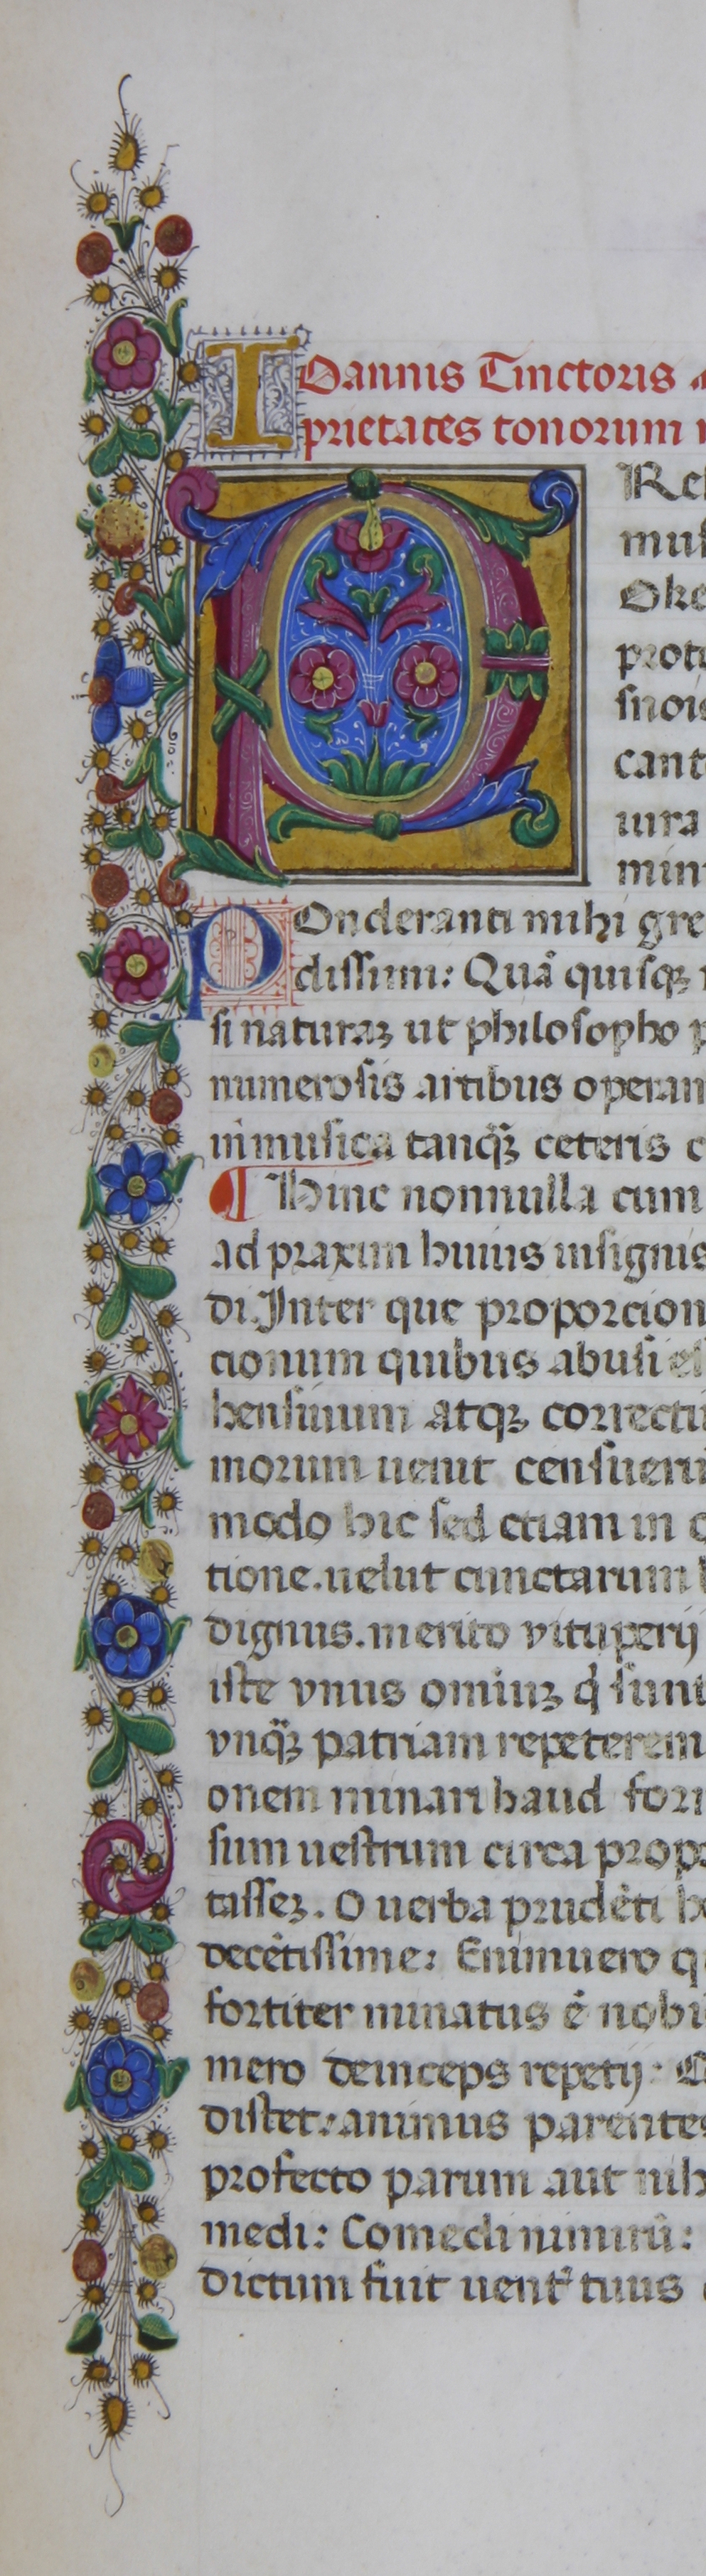 IOannis Tinctoris
prietates tonorum
PRe
mus
Oke
prot
snoi
cant
uira
min
POnderanti mihi gre
dissim: Quã quisqꝫ
si naturaꝫ ut philosopho p
numerosis artibus operan
in musica tanqꝫ̃ ceteris c
¶ Hinc nonnulla cum
ad praxim huius insignis
di. Inter que proporcion
cionum quibus abusi es
hensiuum atqꝫ correcti
morum uenit censueri
modo hic sed etiam in o
tione. uelut cunctarum
dignus. merito vituperij
iste vnus omiuꝫ q̇ sunt
vnqꝫ̃ patriam repeterem
onem minari haud for
sum uestrum circa prop
tasseꝫ. O uerba prudẽti h
decẽtissime: Enimuero q
fortiter minatus ẽ nobi
mero deinceps repetij: C
distet: animus parentes
profecto parum aut nih
medi: Comedi nimirũ:
dictum fuit uentᵉ tuus